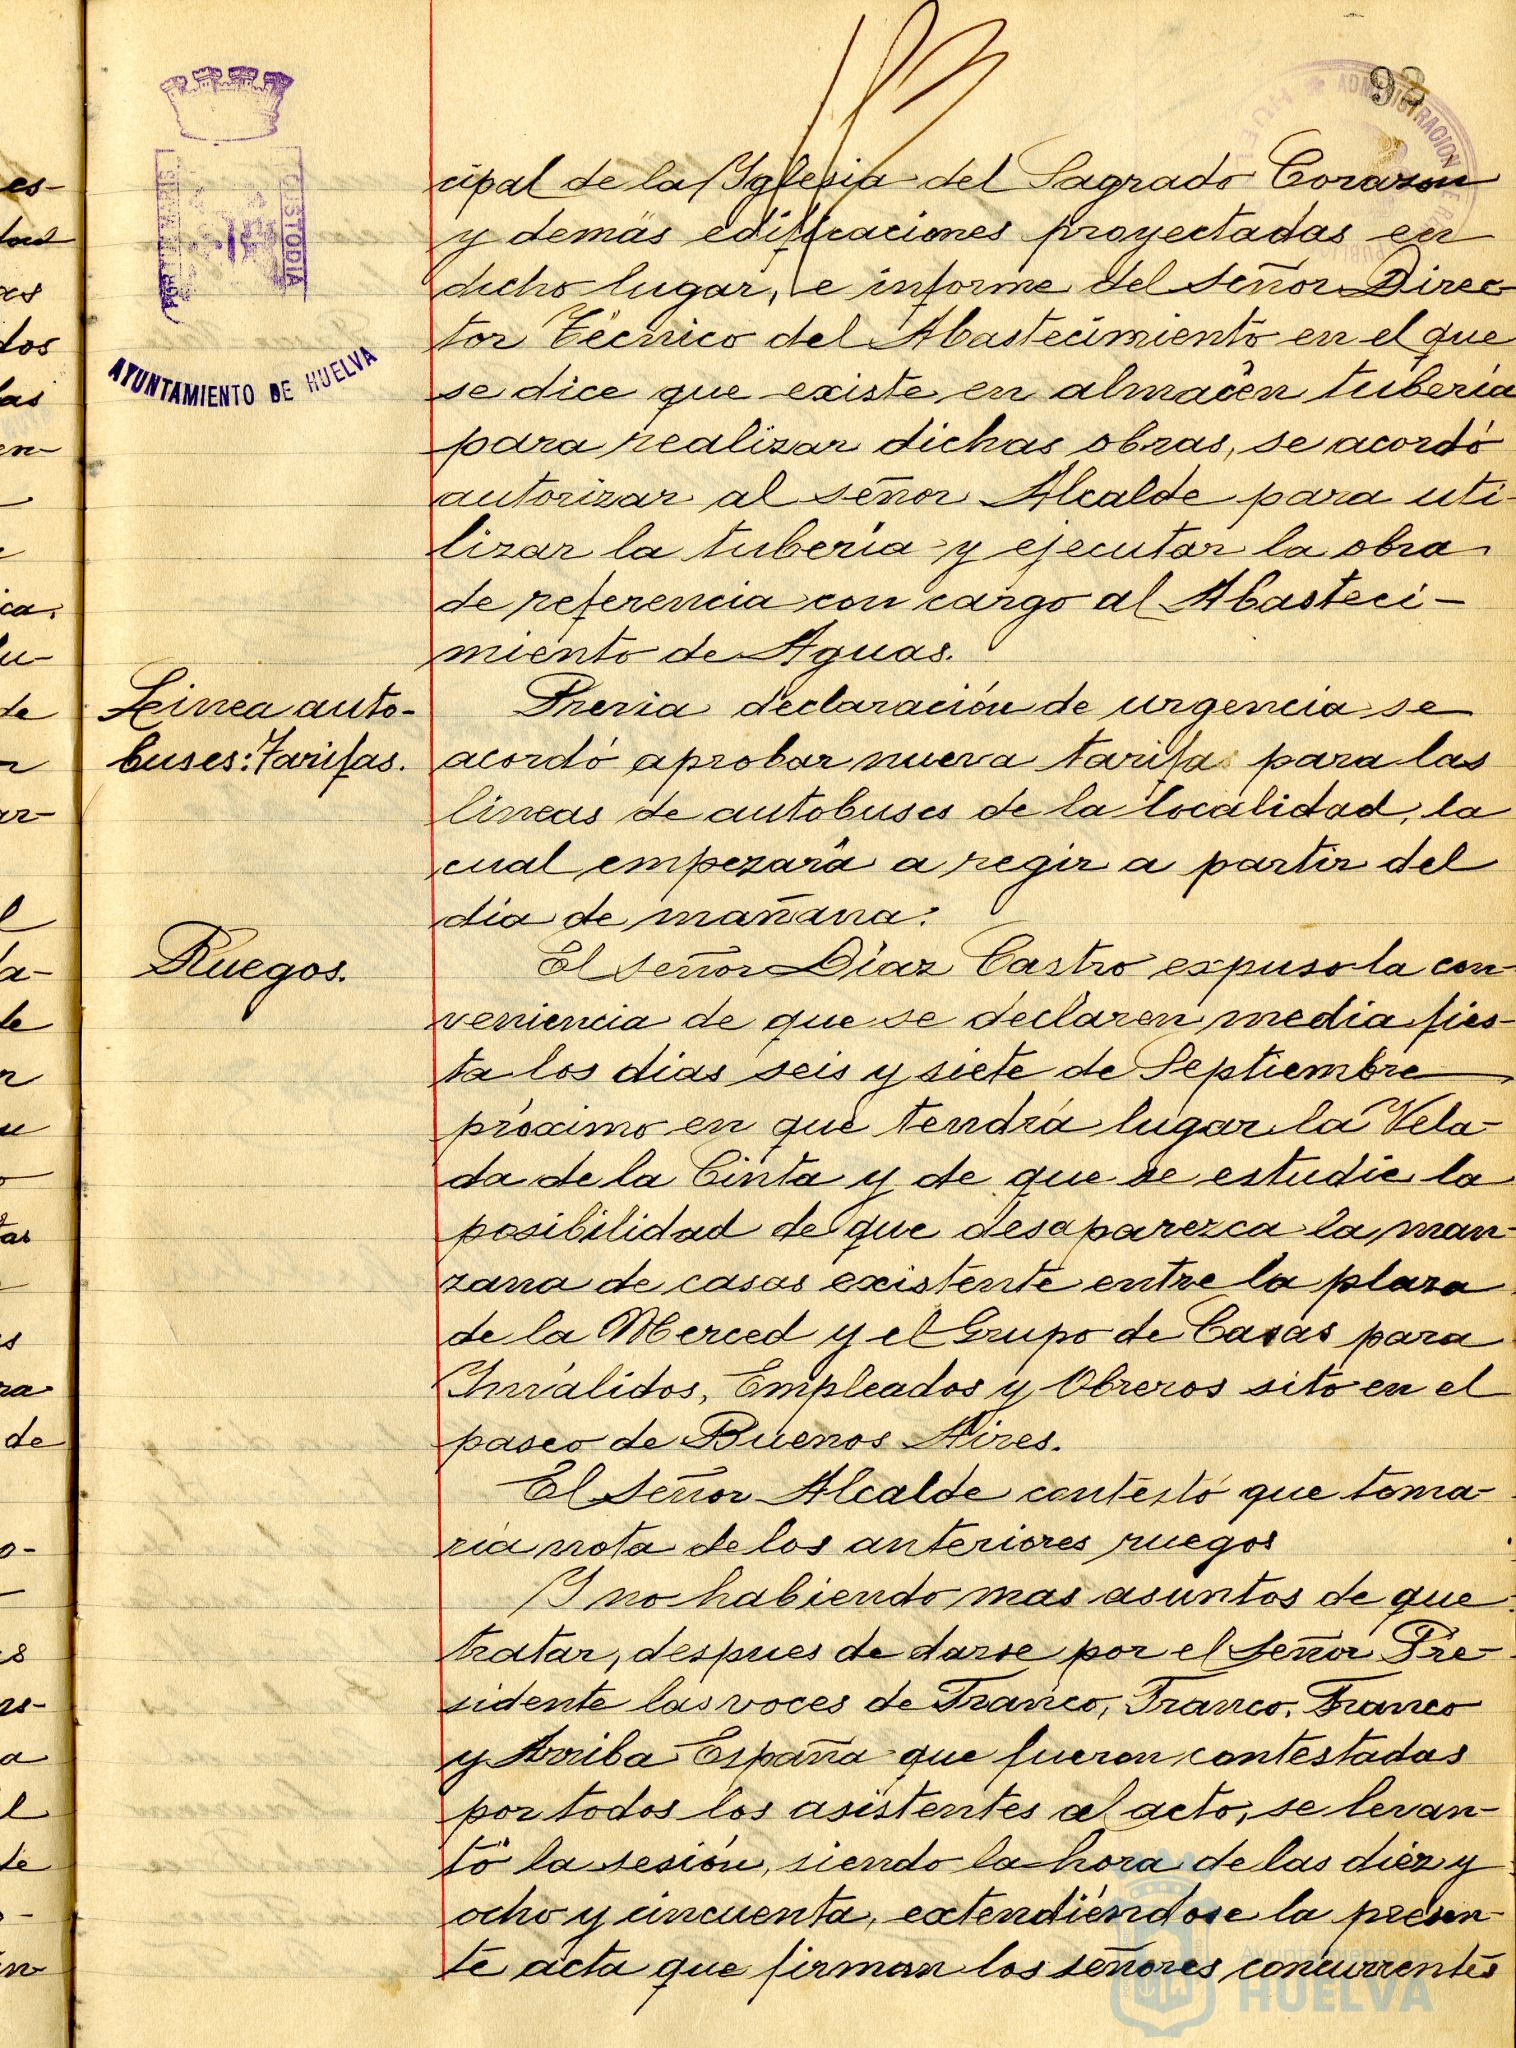 98
PORTUS MARIS
CUSTODIA
AYUNTAMIENTO DE HUELVA
cipal de la Iglesia del Sagrado Corazon
y demás edificaciones proyectadas en
dicho lugar, e informe del señor Direc-
tor Técnico del Abastecimiento en el que
se dice que existe en almacén tubería
para realizar dichas obras, se acordó
autorizar al señor Alcalde para uti-
lizar la tubería y ejecutar la obra
de referencia con cargo al Abasteci-
miento de Aguas.
Linea auto-
buses: Tarifas.
Previa declaración de urgencia se
acordó aprobar nueva tarifa para las
lineas de autobuses de la localidad, la
cual empezará a regir a partir del
dia de mañana.
Ruegos.
El señor Díaz Castro expuso la con-
veniencia de que se declaren media fies-
ta los dias seis y siete de Septiembre
próximo en que tendrá lugar la Vela-
da de la Cinta y de que se estudie la
posibilidad de que desaparezca la man-
zana de casas existente entre la plaza
de la Merced y el Grupo de Casas para
Inválidos, Empleados y Obreros sito en el
paseo de Buenos Aires.
El señor Alcalde contestó que toma-
ría nota de los anteriores ruegos
Y no habiendo mas asuntos de que
tratar, despues de darse por el señor Pre-
sidente las voces de Franco, Franco, Franco
y Arriba España que fueron contestadas
por todos los asistentes al acto, se levan-
tó la sesión, siendo la hora de las diez y
ocho y cincuenta, extendiéndose la presen-
te acta que firman los señores concurrentes
Ayuntamiento de
HUELVA